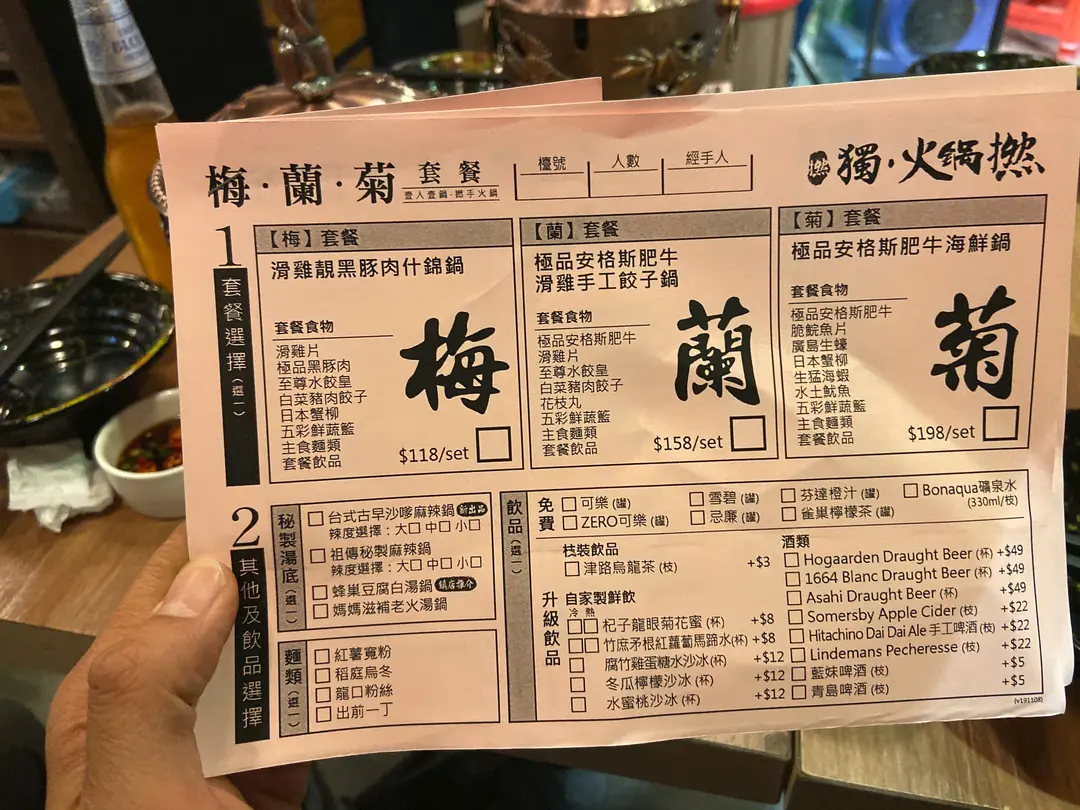 梅·蘭·菊 套餐
壹人壹鍋·撚手火鍋
檯號 人數 經手人
撚 獨·火鍋撚
1 套餐選擇（選一）
【梅】套餐
滑雞靚黑豚肉什錦鍋
套餐食物
滑雞片
極品黑豚肉
至尊水餃皇
白菜豬肉餃子
日本蟹柳
五彩鮮蔬籃
主食麵類
套餐飲品
梅
$118/set
【蘭】套餐
極品安格斯肥牛
滑雞手工餃子鍋
套餐食物
極品安格斯肥牛
滑雞片
至尊水餃皇
白菜豬肉餃子
花枝丸
五彩鮮蔬籃
主食麵類
套餐飲品
蘭
$158/set
【菊】套餐
極品安格斯肥牛海鮮鍋
套餐食物
極品安格斯肥牛
脆鯇魚片
廣島生蠔
日本蟹柳
生猛海蝦
水土魷魚
五彩鮮蔬籃
主食麵類
套餐飲品
菊
$198/set
2 其他及飲品選擇
秘製湯底（選一）
台式古早沙嗲麻辣鍋 新出品
辣度選擇：大 中 小
祖傳秘製麻辣鍋
辣度選擇：大 中 小
蜂巢豆腐白湯鍋 鎮店推介
媽媽滋補老火湯鍋
麵類（選一）
紅薯寬粉
稻庭烏冬
龍口粉絲
出前一丁
飲品（選一）
免費
可樂 (罐) 雪碧 (罐) 芬達橙汁 (罐) Bonaqua礦泉水
(330ml/枝)
ZERO可樂 (罐) 忌廉 (罐) 雀巢檸檬茶 (罐)
升級飲品
枝裝飲品
津路烏龍茶 (枝) +$3
自家製鮮飲
冷 熱
杞子龍眼菊花蜜 (杯) +$8
竹庶矛根紅蘿蔔馬蹄水(杯) +$8
腐竹雞蛋糖水沙冰(杯) +$12
冬瓜檸檬沙冰 (杯) +$12
水蜜桃沙冰 (杯) +$12
酒類
Hogaarden Draught Beer (杯) +$49
1664 Blanc Draught Beer (杯) +$49
Asahi Draught Beer (杯) +$49
Somersby Apple Cider (枝) +$22
Hitachino Dai Dai Ale 手工啤酒 (枝) +$22
Lindemans Pecheresse (枝) +$22
藍妹啤酒 (枝) +$5
青島啤酒 (枝) +$5
(v191108)